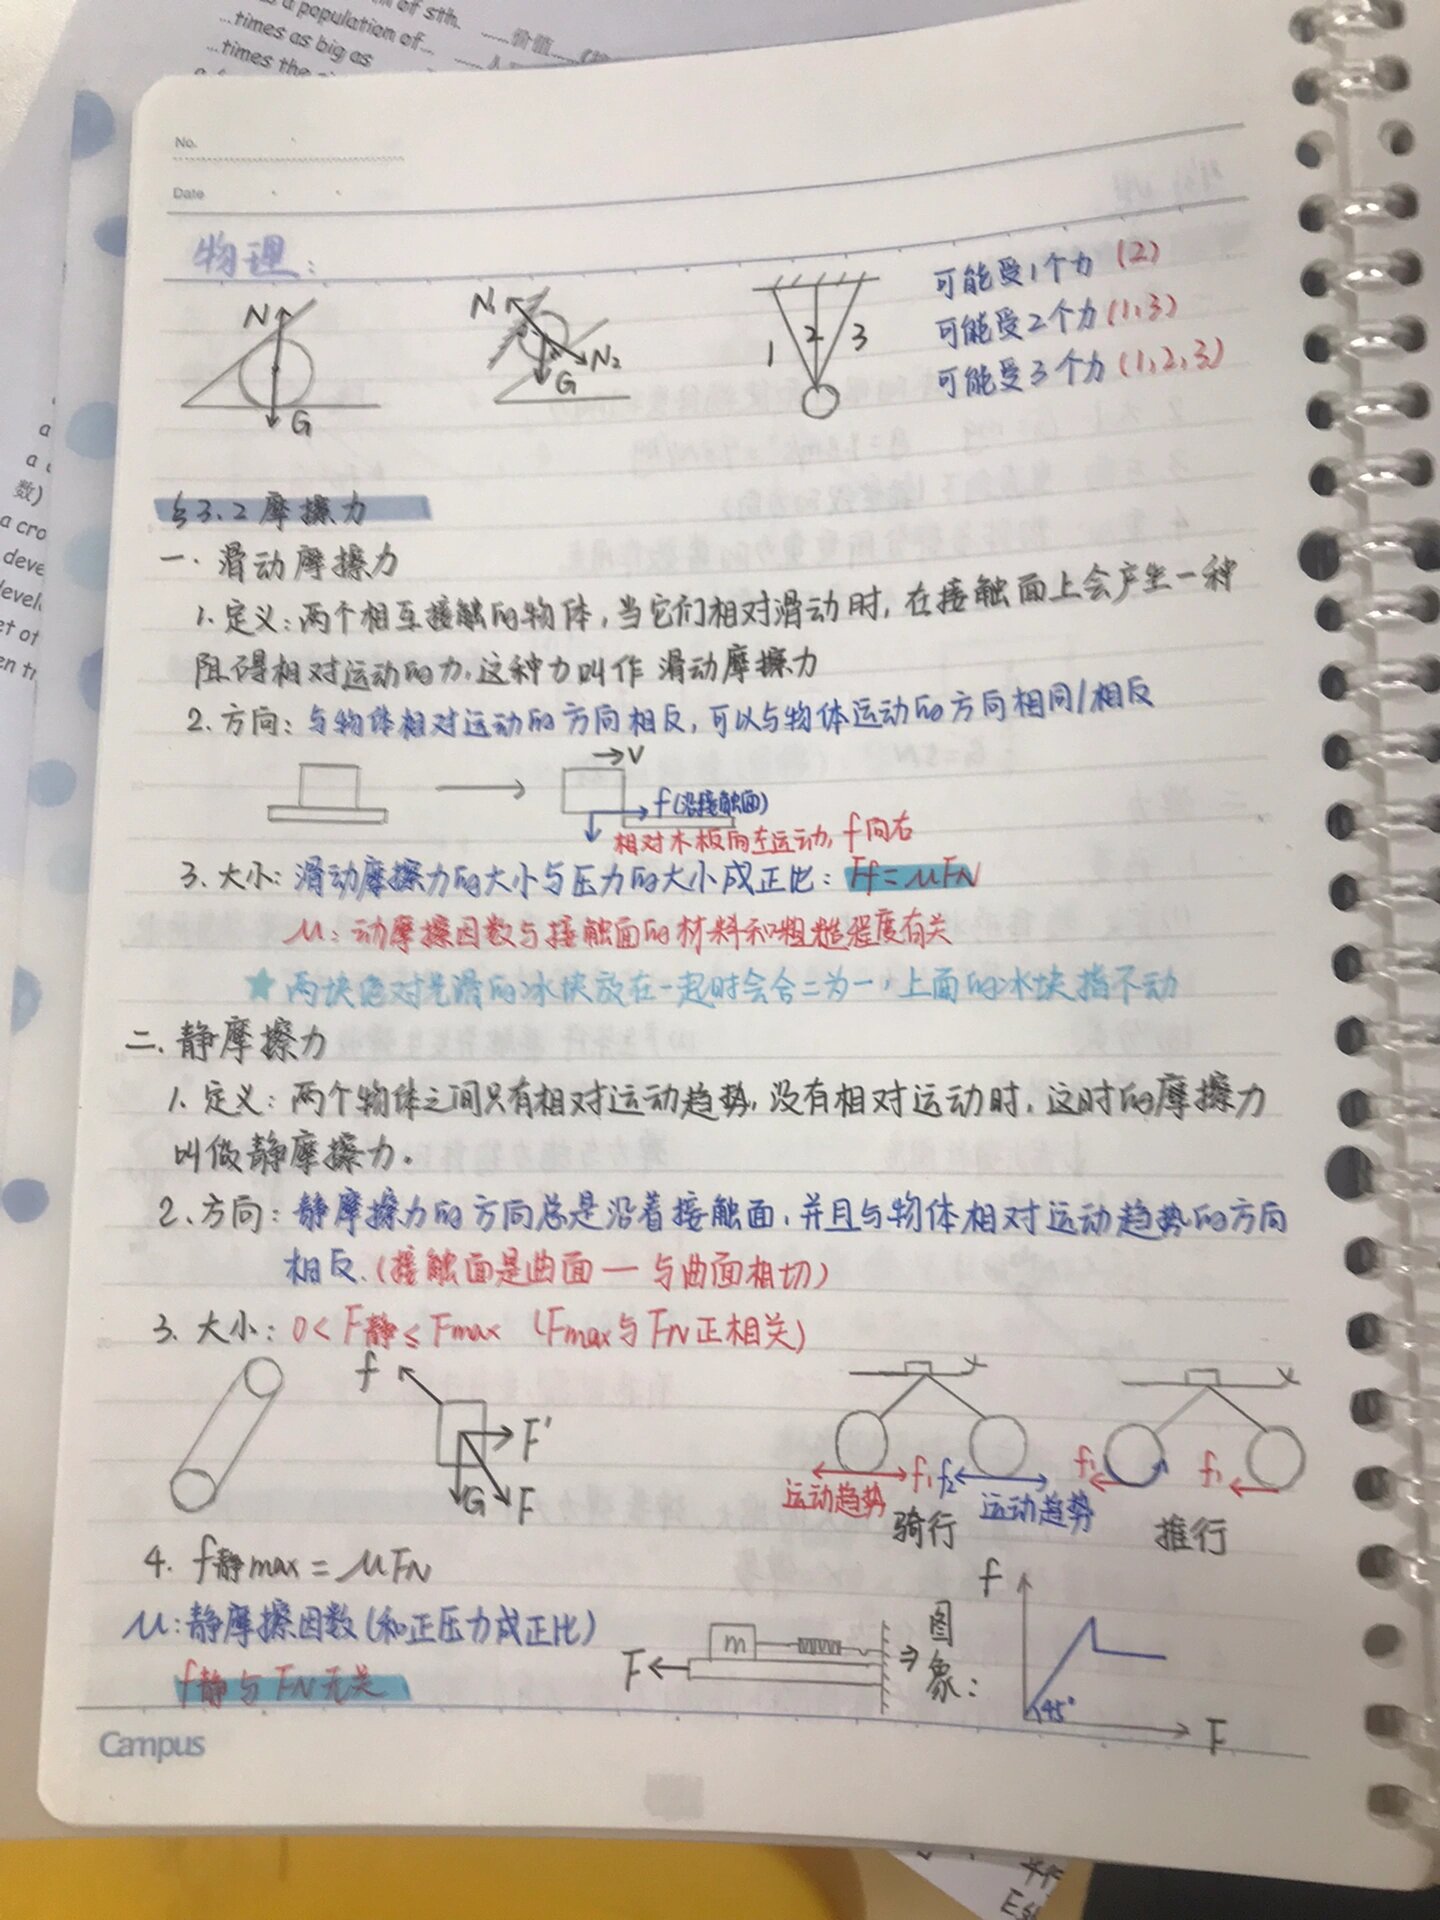 …times as big as
No.
Date
物理:
N
G
N₁
N₂
G
1 2 3
可能受1个力 (2)
可能受2个力 (1,3)
可能受3个力 (1,2,3)
§3.2 摩擦力
一. 滑动摩擦力
1. 定义:两个相互接触的物体,当它们相对滑动时,在接触面上会产生一种
阻碍相对运动的力,这种力叫作 滑动摩擦力
2. 方向:与物体相对运动的方向相反,可以与物体运动的方向相同/相反
V
f(沿接触面)
相对木板向左运动, f向右
3. 大小:滑动摩擦力的大小与压力的大小成正比:Ff=μFN
μ:动摩擦因数与接触面的材料和粗糙程度有关
★ 两块绝对光滑的冰块放在一起时会合二为一,上面的冰块推不动
二. 静摩擦力
1. 定义:两个物体之间只有相对运动趋势,没有相对运动时,这时的摩擦力
叫做静摩擦力.
2. 方向:静摩擦力的方向总是沿着接触面,并且与物体相对运动趋势的方向
相反.(接触面是曲面 — 与曲面相切)
3. 大小:0 < F静 ≤ Fmax (Fmax与FN正相关)
f
F'
G F
运动趋势 f₁ f₂ 运动趋势
骑行
f₁ f₁
推行
4. f静max = μFN
μ:静摩擦因数(和正压力成正比)
f静与FN无关
F m ⇒ 图象:
f
45°
F
Campus